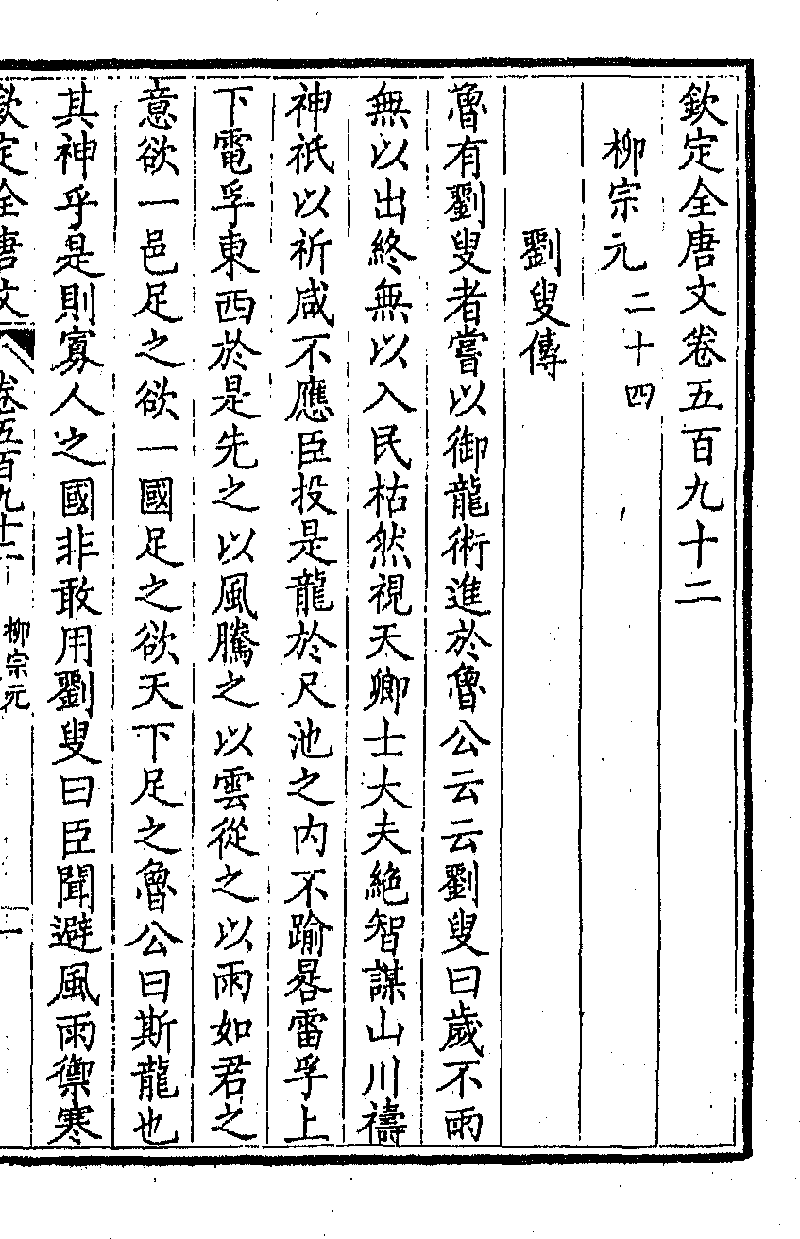 欽定全唐文卷五百九十二
柳宗元二十四
劉叟傳
魯有劉叟者嘗以御龍術進於魯公云云劉叟曰歲不雨
無以出終無以入民枯然視天卿士大夫絶智謀山川禱
神祇以祈咸不應臣投是龍於尺池之內不踰晷雷孚上
下電孚東西於是先之以風騰之以雲從之以雨如君之
意欲一邑足之欲一國足之欲天下足之魯公曰斯龍也
其神乎是則寡人之國非敢用劉叟曰臣聞避風雨禦寒
欽定全唐文 卷五百九十二 柳宗元 一